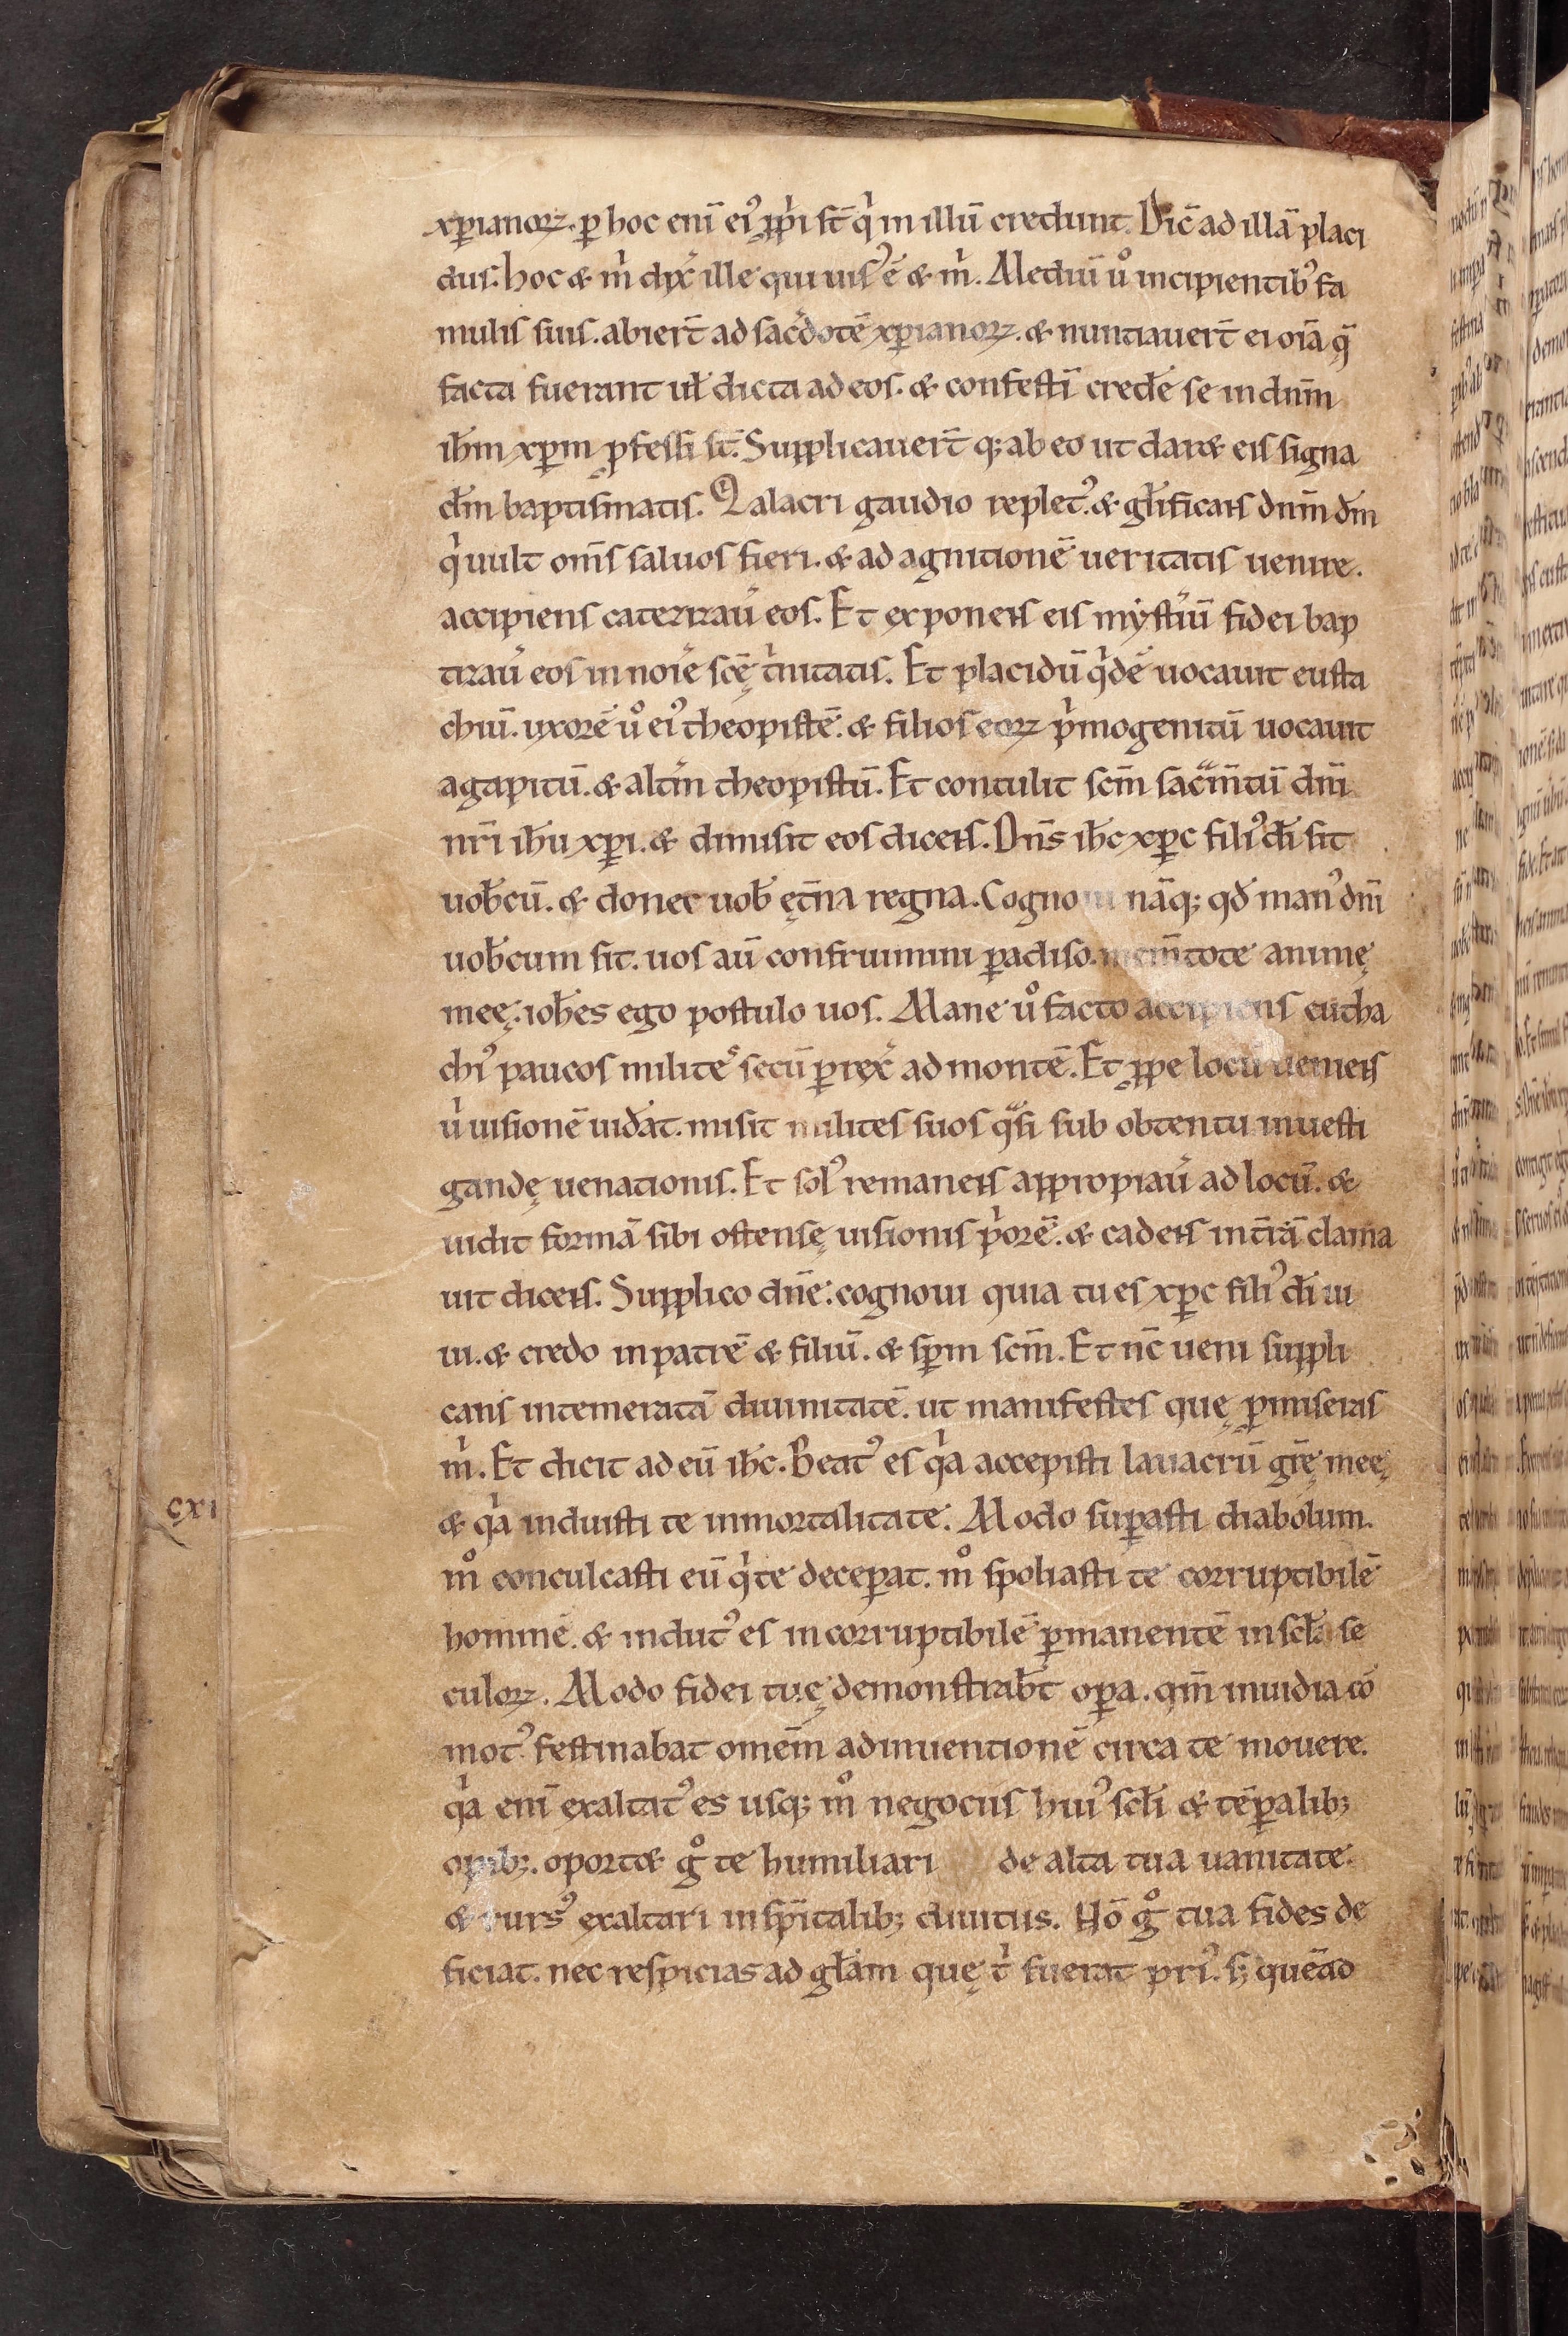 xp̄ianoꝝ. ꝑ hoc eni᷑ ei᷒ ꝓp̍i st̄ q̍ in illū credunt. Dic̄ ad illā placi
dus. hoc & m̍ dix̓ ille qui uis᷒ ē & m̍. Mediū u̇ incipientib᷒ fa
mulis suis. abier̄t ad sac̓dotē xp̄ianoꝝ. & nuntiauer̄t ei oīa q̄
facta fuerant uł dicta ad eos. & confestī cred̓e se in dnm̄
ihm̄ xp̄m ꝓfessi st̄. Supplicauer̄t q; ab eo ut dar& eis signa
dm̄ baptismatis. Q alacri gaudio replet᷒. & głificans dnm̄ dm̄
q̍ uult om̄s saluos fieri. & ad agnitionē ueritatis uenire.
accipiens catezizau̓ eos. Et exponens eis myst̓iū fidei bap
tizau̓ eos in noīe scę̄ t̍nitatis. Et placidū q̍dē uocauit eusta
chiū. uxorē u̇ ei᷒ theopistē. & filios eoꝝ p̍mogenitū uocauit
agapitū. & alt̓m theopistū. Et contulit scm̄ sac̄m̄tū dnī
nr̄i ihū xp̄i. & dimisit eos dicens. Dn̄s ihc̄ xp̄c fili᷒ dī sit
uob̄cū. & donet uob̄ ęt̄na regna. Cognoui nāq; qd̄ man᷒ dnī
uob̄cum sit. uos au᷑ confruimini ꝑadiso. mem̄tote animę
meę. ioh̄es ego postulo uos. Mane u̇ facto accipiens eutha
chi᷒ paucos milites secū ꝑrex̓ ad montē. Et ꝓpe locū ueniens
u̍ uisionē uid̓at. misit milites suos q̄si sub obtentu inuesti
gandę uenationis. Et sol᷒ remanens appropiau̓ ad locū. &
uidit formā sibi ostensę uisionis p̍orē. & cadens in t̄rā clama
uit dicens. Supplico dn̄e. cognoui quia tu es xp̄c fili᷒ dī ui
ui. & credo in patrē & filiū. & sp̄m scm̄. Et nc̄ ueni suppli
cans intemeratā diuinitatē. ut manifestes quę ꝓmiseras
m̍. Et dicit ad eū ihc̄. Beat᷒ es q̍a accepisti lauacrū gr̄ę meę
& q̍a induisti te inmortalitate. Modo suꝑasti diabolum.
m̊ conculcasti eū q̍ te deceꝑat. m̊ spoliasti te corruptibilē
hominē. & indut᷒ es incorruptibilē ꝑmanentē in scła se
culoꝝ. Modo fidei tuę demonstrab̄t oꝑa. qm̄ inuidia cō
mot᷒ festinabat omēm adinuentionē circa te mouere.
q̍a enī exaltat᷒ es usq; m̊ negociis hui᷒ scłi & tēꝑalib;
opib;. oport& g̊ te humiliari de alta tua uanitate.
& rurs᷒ exaltari in sp̄italib; diuitiis. Nō g̊ tua fides de
ficiat. nec respicias ad głam quę t̍ fuerat pri᷒. s; quēad
cxi